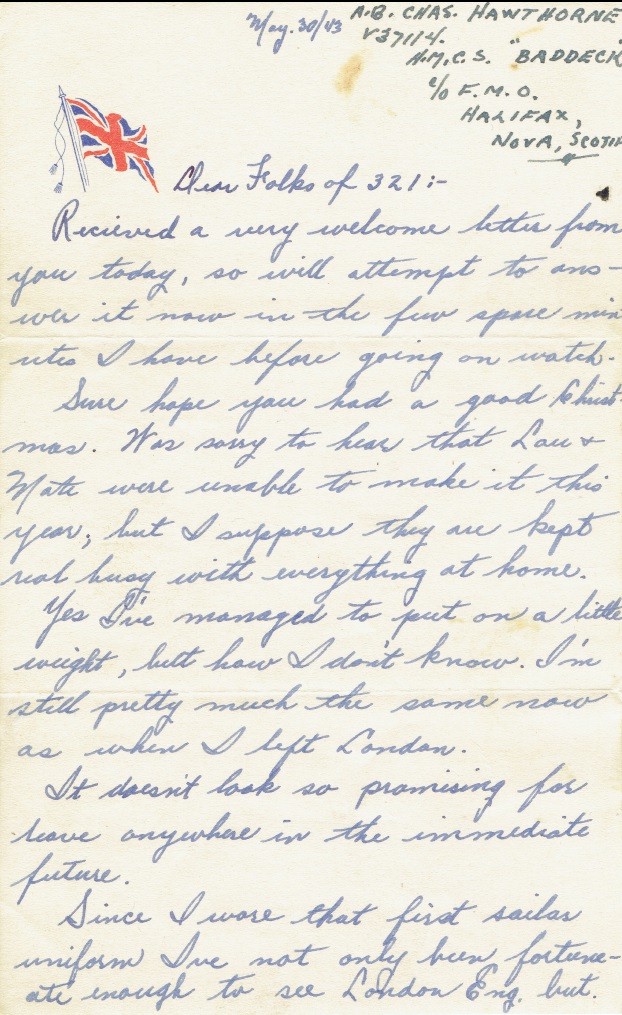 May. 30/43
A.B. CHAS. HAWTHORNE
V37114.
H.M.C.S. "BADDECK
c/o F.M.O.
HALIFAX,
NOVA, SCOTIA
Dear Folks of 321:-
Recieved a very welcome letter from
you today, so will attempt to ans-
wer it now in the few spare min
utes I have before going on watch.
Sure hope you had a good Christ-
mas. Was sorry to hear that Lau &
Mate were unable to make it this
year, but I suppose they are kept
real busy with everything at home.
Yes I've managed to put on a little
weight, butt how I don't know. I'm
still pretty much the same now
as when I left London.
It doesn't look so promising for
leave anywhere in the immediate
future.
Since I wore that first sailor
uniform I've not only been fortune-
ate enough to see London Eng. but.